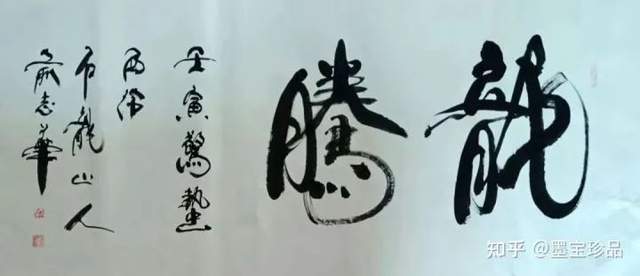 龍騰
壬寅驚蟄
石龍山人
俞志華
知乎 @墨宝珍品